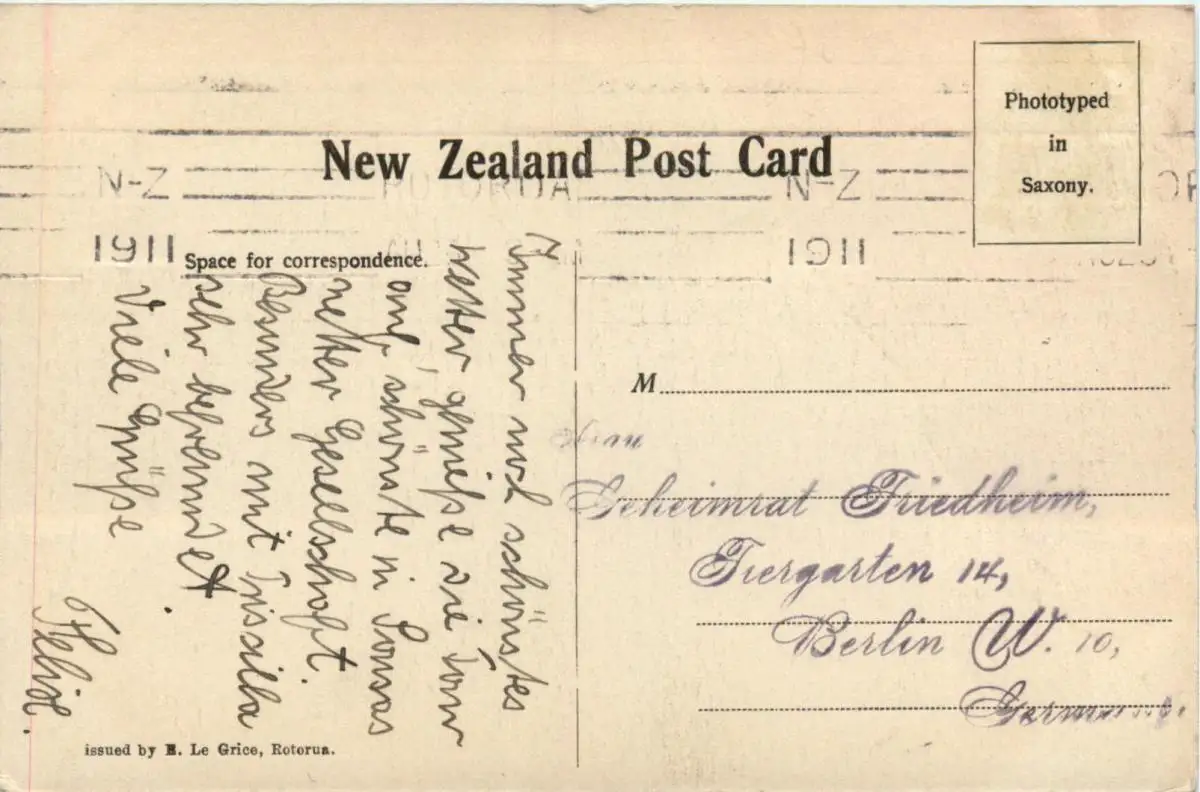 New Zealand Post Card
Phototyped
in
Saxony.
N-Z ROTORUA N-Z
1911 1911
Space for correspondence.
Immer noch schönstes
Wetter, genieße die Tour
auf's schönste in
netter Gesellschaft.
Besonders mit
sehr befreundet.
Viele Grüße
M
Frau
Geheimrat Friedheim,
Tiergarten 14,
Berlin W. 10,
Germany.
issued by E. Le Grice, Rotorua.